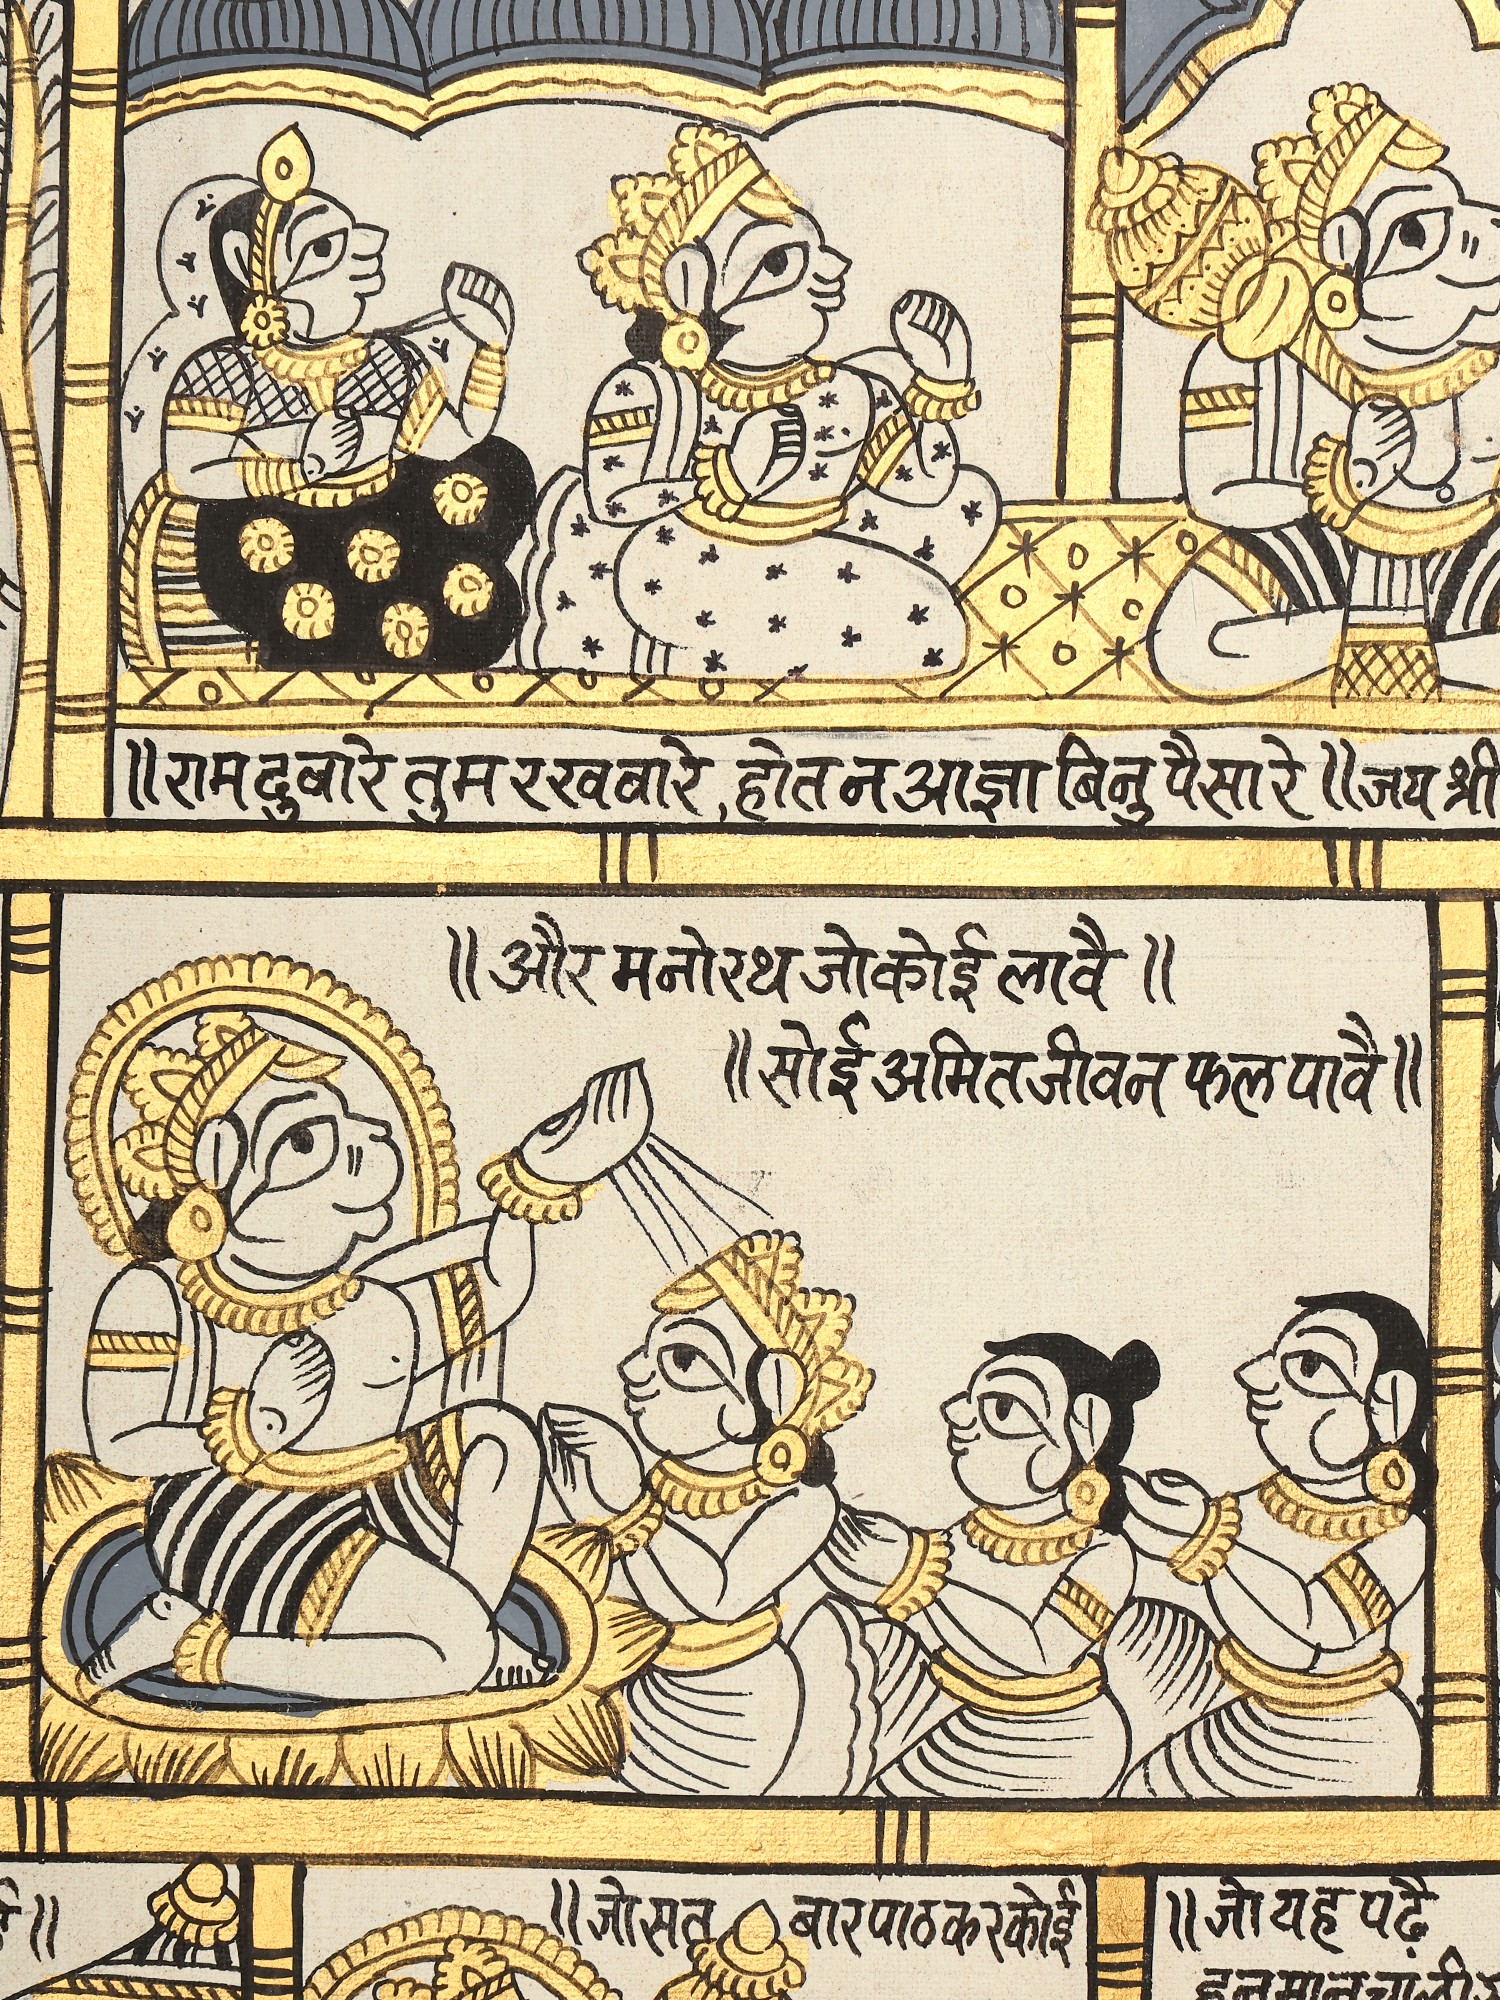 ॥रामदुबारे तुम रखवारे, होत न आज्ञा बिनु पैसारे॥जय श्री
॥और मनोरथ जो कोई लावै॥
॥सोई अमित जीवन फल पावै॥
॥जो सत बार पाठ कर कोई
॥जो यह पढ़ै
हनुमान चालीस